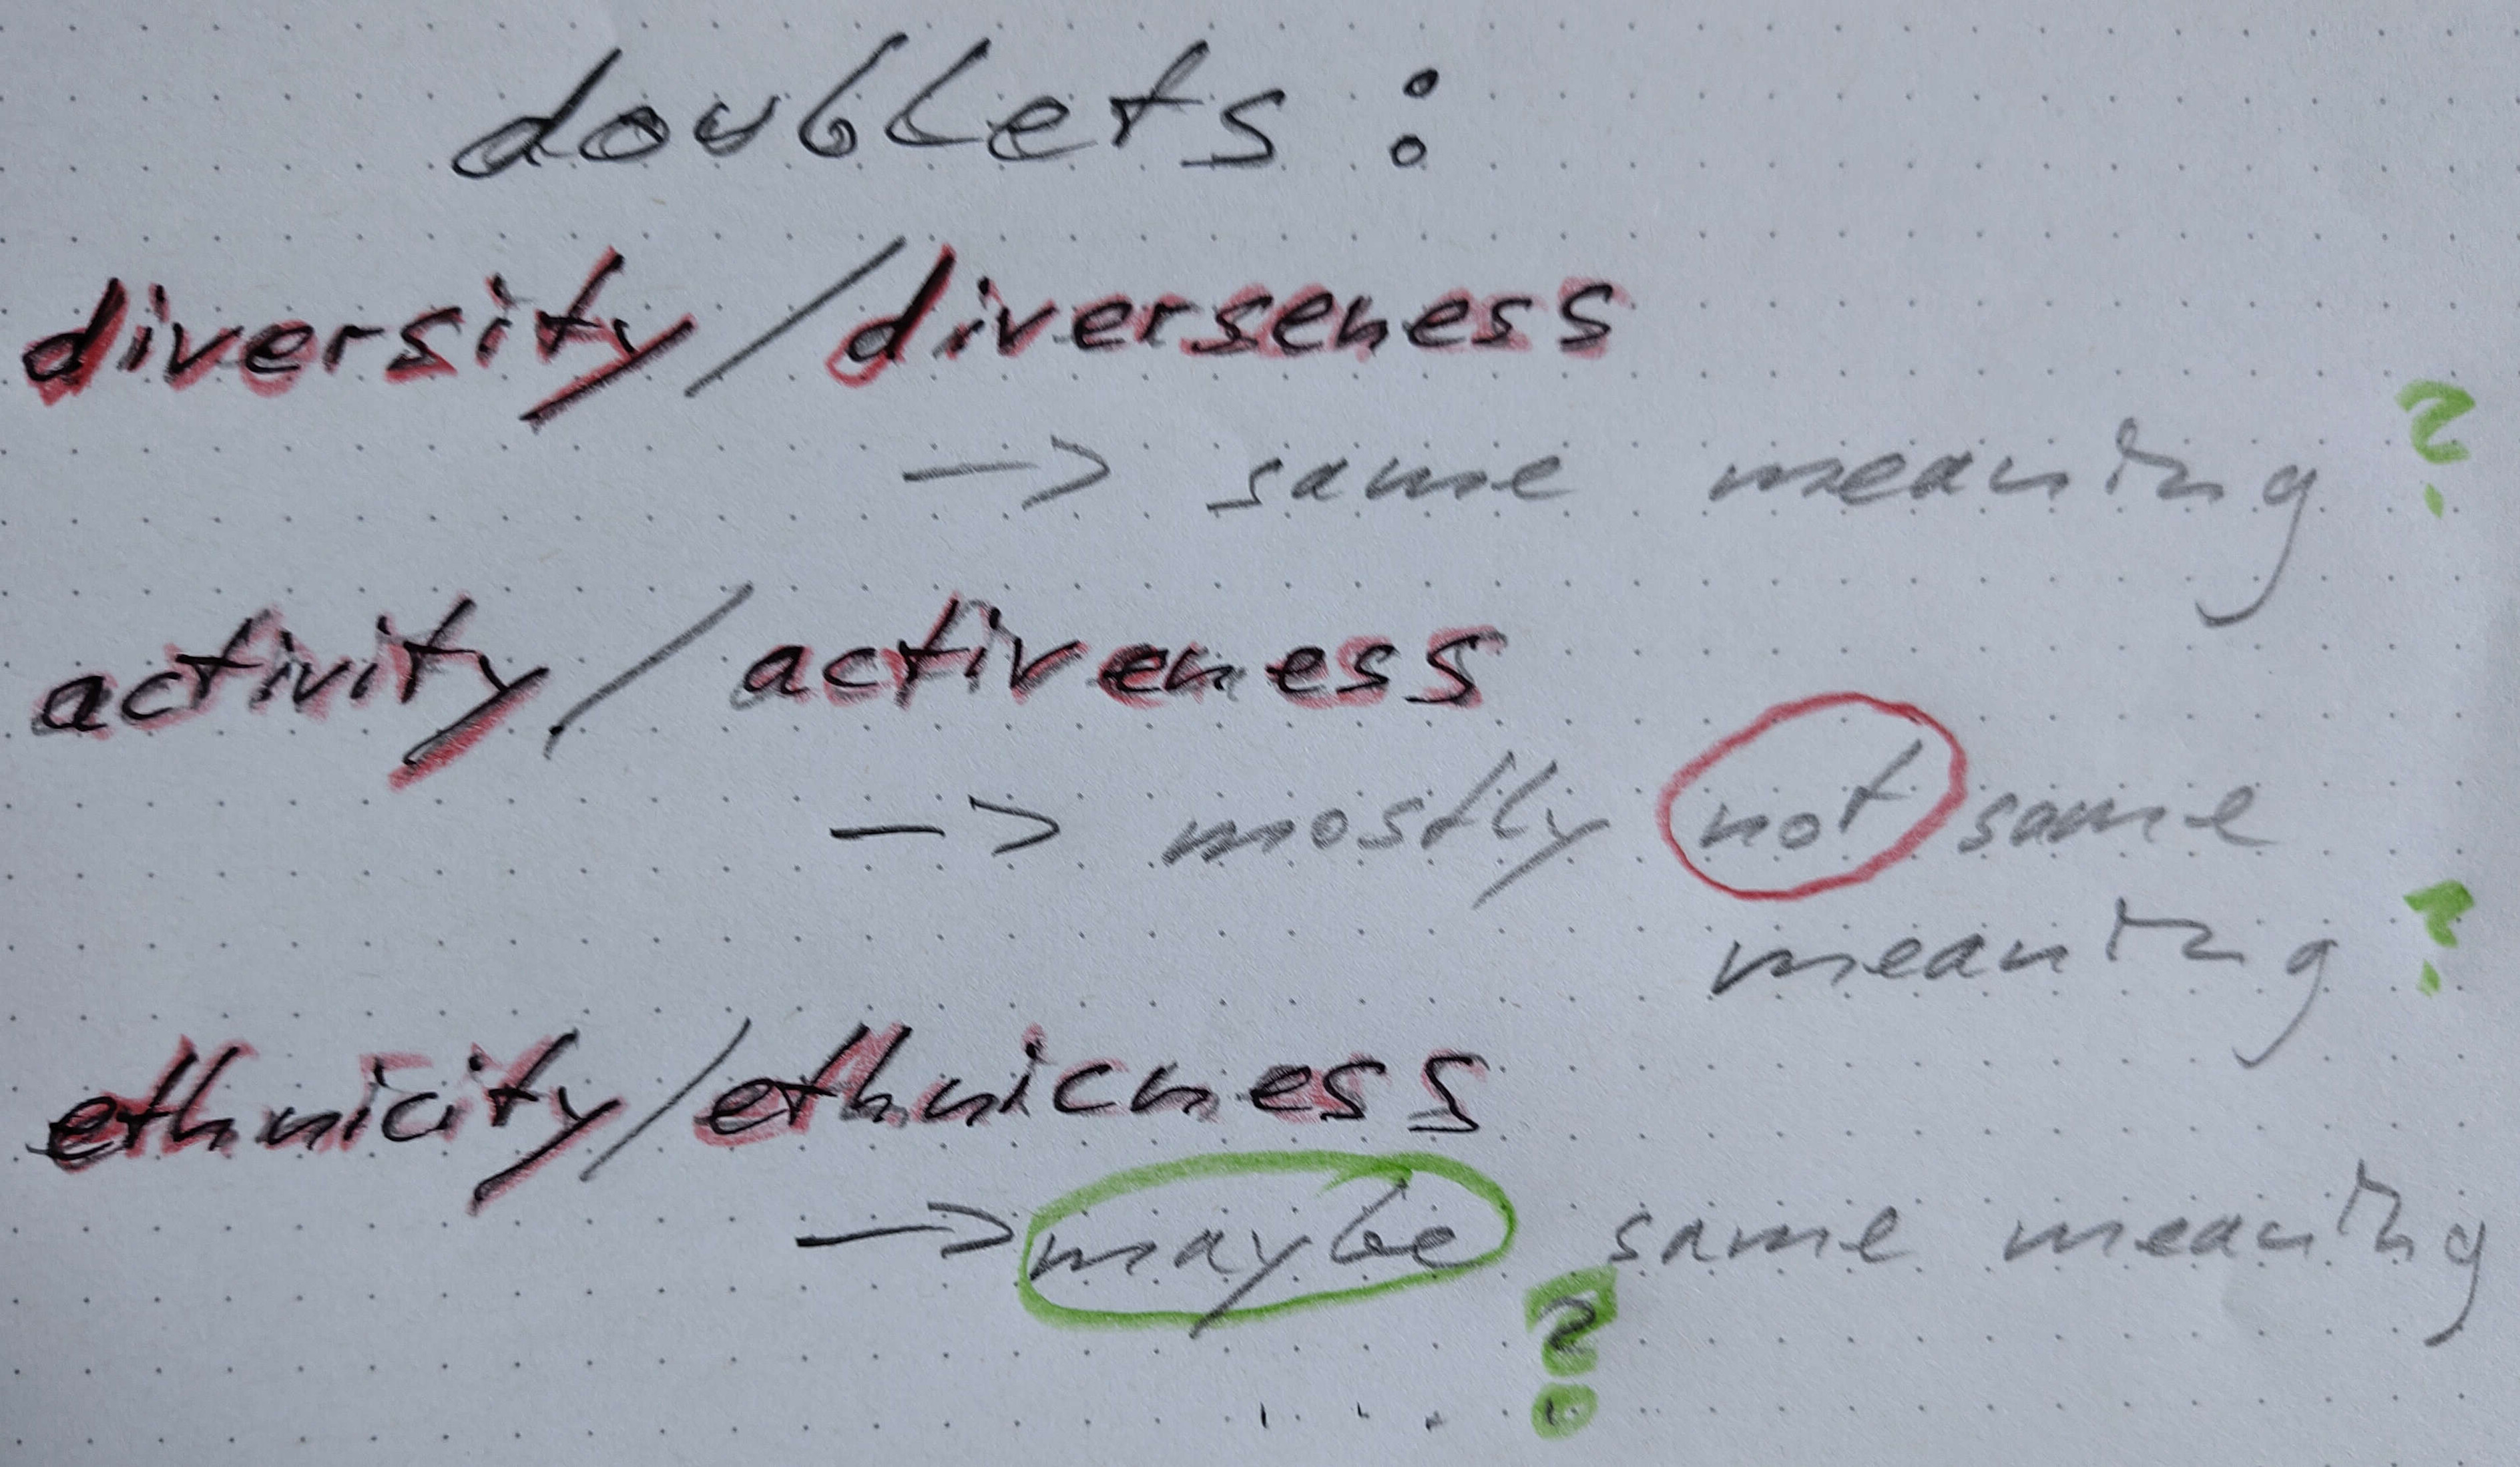 doublets :
diversity / diverseness
-> same meaning ?
activity / activeness
-> mostly not same
meaning ?
ethnicity / ethnicness
-> maybe same meaning
?